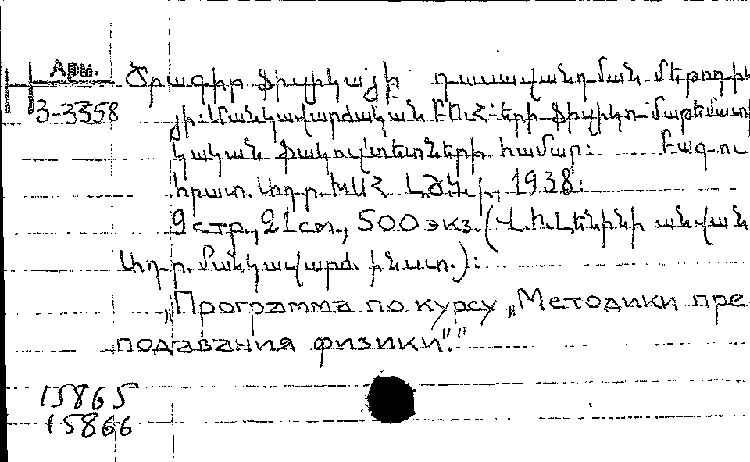 Арм.
3-3358
Ծրագիր ֆիզիկայի դասավանդման մեթոդի
յի: Մանկավարժական ԲՈՒՀ-երի ֆիզիկո-մաթեմատի
կական ֆակուլտետների համար: Բաքու
հրատ. Ադր. ԽՍՀ 1938:
9 стр., 21 см., 500 экз. (Վ.Ի.Լենինի անվան
Ադր. մանկավարժ. ինստ.):
„Программа по курсу „Методики пре
подавания физики"."
15865
15866